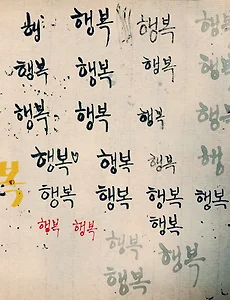 해 행복 행복 행복
행복 행복 행복 행복
행복 행복 행복 행복
행복 행복 행복 행
복 행복 행복 행복 행복
행복 행복 행복
행복 행복
행복